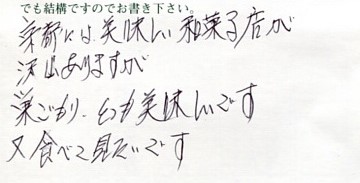 でも結構ですのでお書き下さい。
京都には、美味しい和菓子店が
沢山ありますが
巣ごもり、とても美味しいです
又食べて見たいです